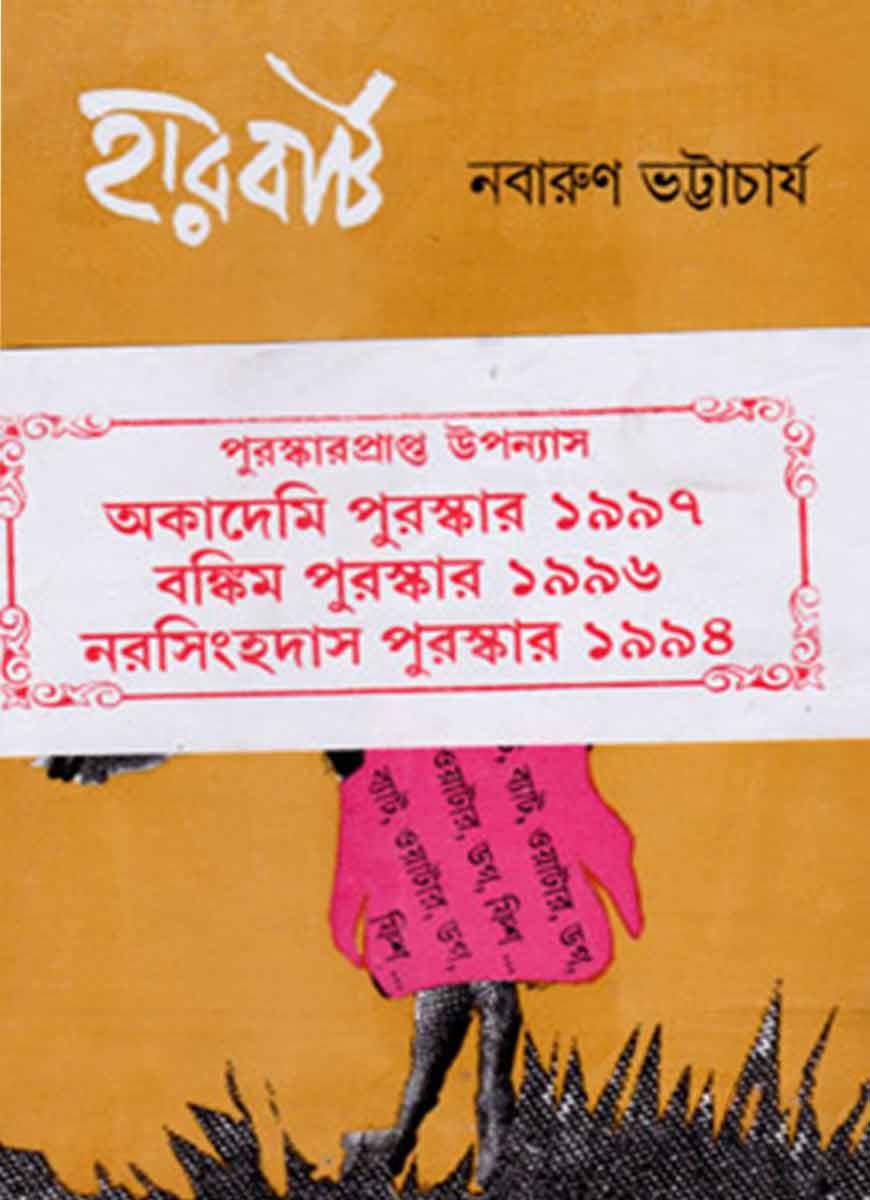 হারবার্ট
নবারুণ ভট্টাচার্য
পুরস্কারপ্রাপ্ত উপন্যাস
অকাদেমি পুরস্কার ১৯৯৭
বঙ্কিম পুরস্কার ১৯৯৬
নরসিংহদাস পুরস্কার ১৯৯৪
ব্যাট, ওয়াটার, ডগ,
ফিশ ...
ওয়াটার, ডগ, ফিশ ...
ব্যাট, ওয়াটার, ডগ,